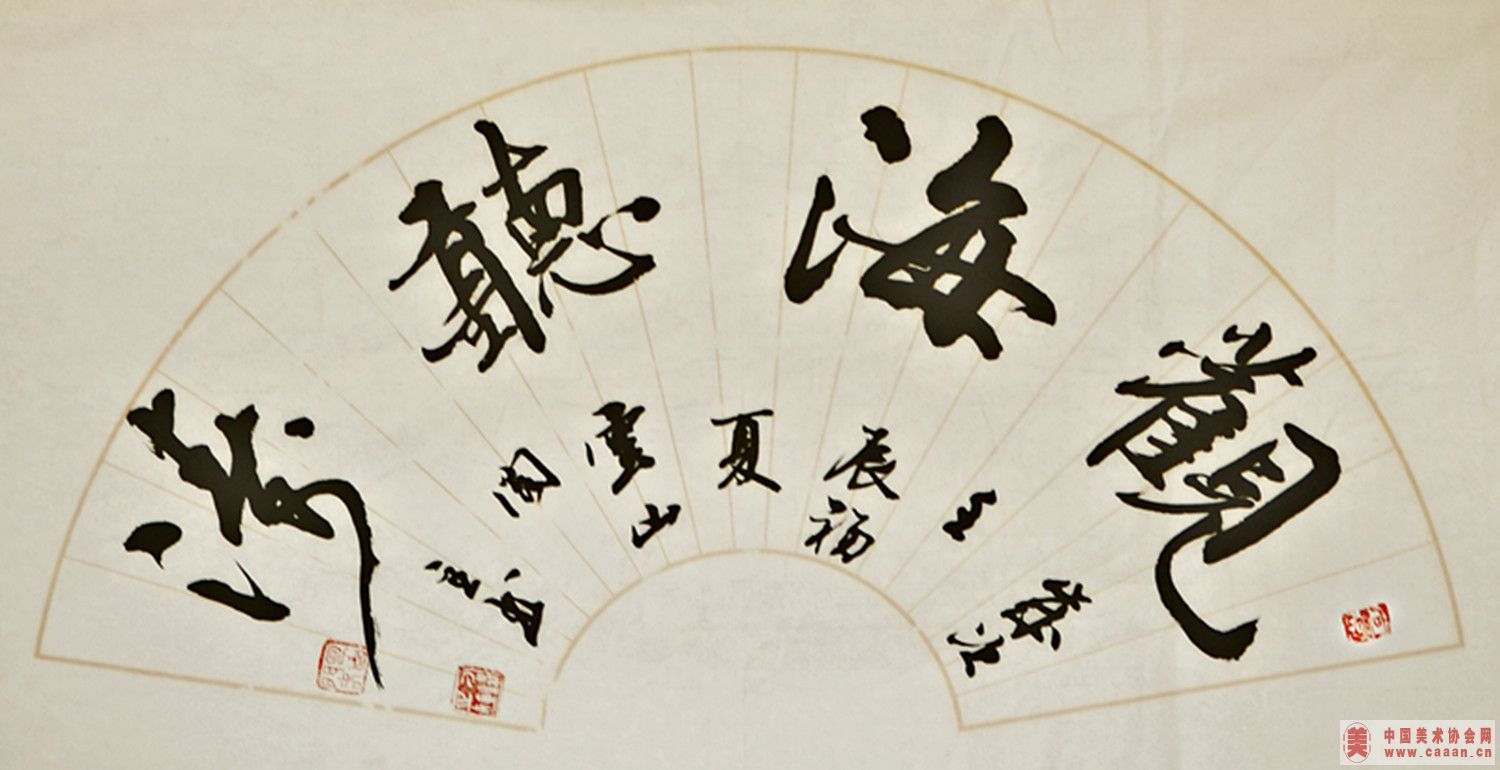 觀海聽濤
歲次
壬
辰初
夏
雲山
美
中国美术协会网
www.caaan.cn